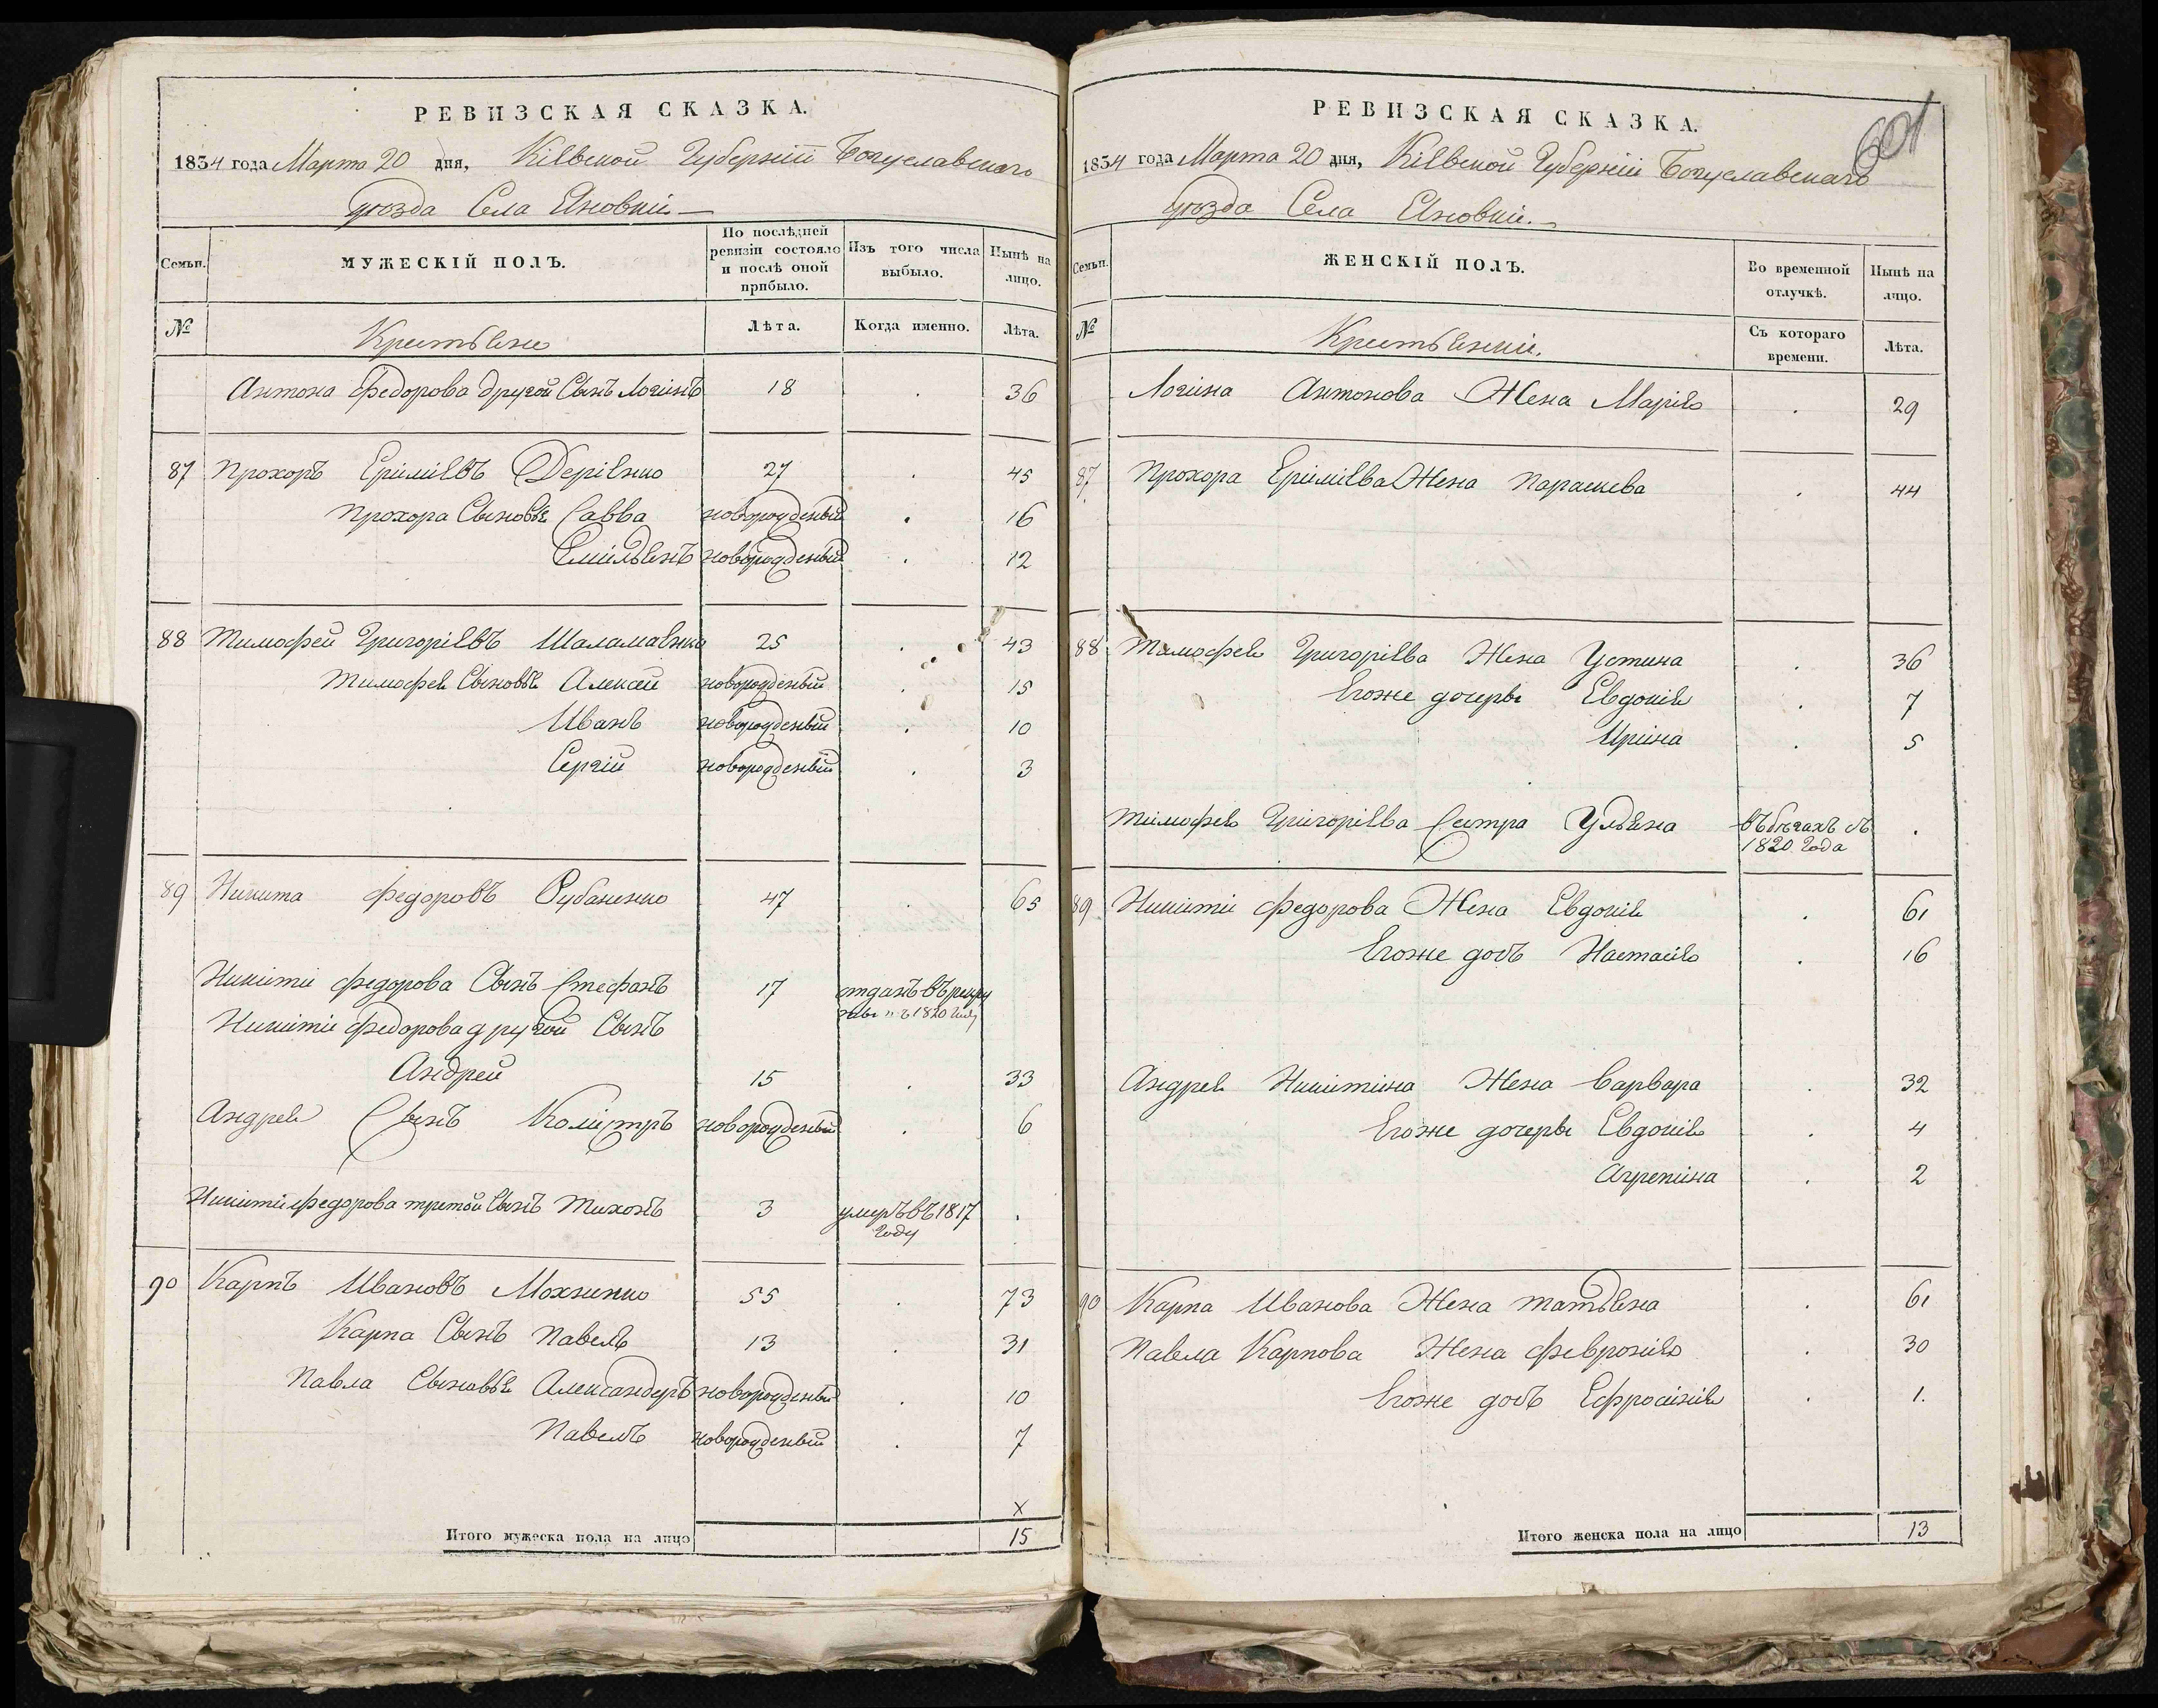 РЕВИЗСКАЯ СКАЗКА.
1834 года Марта 20 дня, Кіевской Губерніи Богуславскаго
уѣзда Села Яновки.
Семьи.
МУЖЕСКІЙ ПОЛЪ.
По послѣдней ревизіи состояло и послѣ оной прибыло.
Изъ того числа выбыло.
Нынѣ на лицо.
№
Крестьяне
Лѣта.
Когда именно.
Лѣта.
Антона Федорова другой Сынъ Логинъ 18 . 36
87 Прохоръ Еримѣевъ 27 . 45
Прохора Сыновья Савва новорожденый . 16
Емильянъ новорожденый . 12
88 Тимофей Григоріевъ 25 . 43
Тимофея Сыновья Алексей новорожденый . 15
Иванъ новорожденый . 10
Сергій новорожденый . 3
89 Никита Федоровъ Рубаненко 47 . 65
Никити Федорова Сынъ Стефанъ 17 отданъ въ рекру
ты въ 1820 году
Никити Федорова другой Сынъ
Андрей 15 . 33
Андрея Сынъ новорожденый . 6
Никити Федорова третой Сынъ Тихонъ 3 умеръ въ 1817 .
Году
90 Карпъ Ивановъ Мохненко 55 . 73
Карпа Сынъ Павелъ 13 . 31
Павла Сыновья Александеръ новорожденый . 10
Павелъ новорожденый . 7
х
Итого мужеска пола на лицо 15
601
РЕВИЗСКАЯ СКАЗКА.
1834 года Марта 20 дня, Кіевской Губерніи Богуславскаго
уѣзда Села Яновки.
Семьи.
ЖЕНСКІЙ ПОЛЪ.
Во временной отлучкѣ.
Нынѣ на лицо.
№
Крестьянки.
Съ котораго времени.
Лѣта.
Логина Антонова Жена Марія . 29
87 Прохора Еримѣева Жена Параскева . 44
88 Тимофея Григоріева Жена Устина . 36
Егоже дочеры Евдокія . 7
Ирина . 5
Тимофея Григоріева Сестра Ульяна въ бѣгахъ съ .
1820 Года
89 Никити Федорова Жена Евдокія . 61
Егоже дочь Настасія . 16
Андрея Никитина Жена Варвара . 32
Егоже дочеры Евдокія . 4
Агрепина . 2
90 Карпа Иванова Жена Татьяна . 61
Павла Карпова Жена Февронія . 30
Егоже дочь Ефросінія . 1.
Итого женска пола на лицо 13